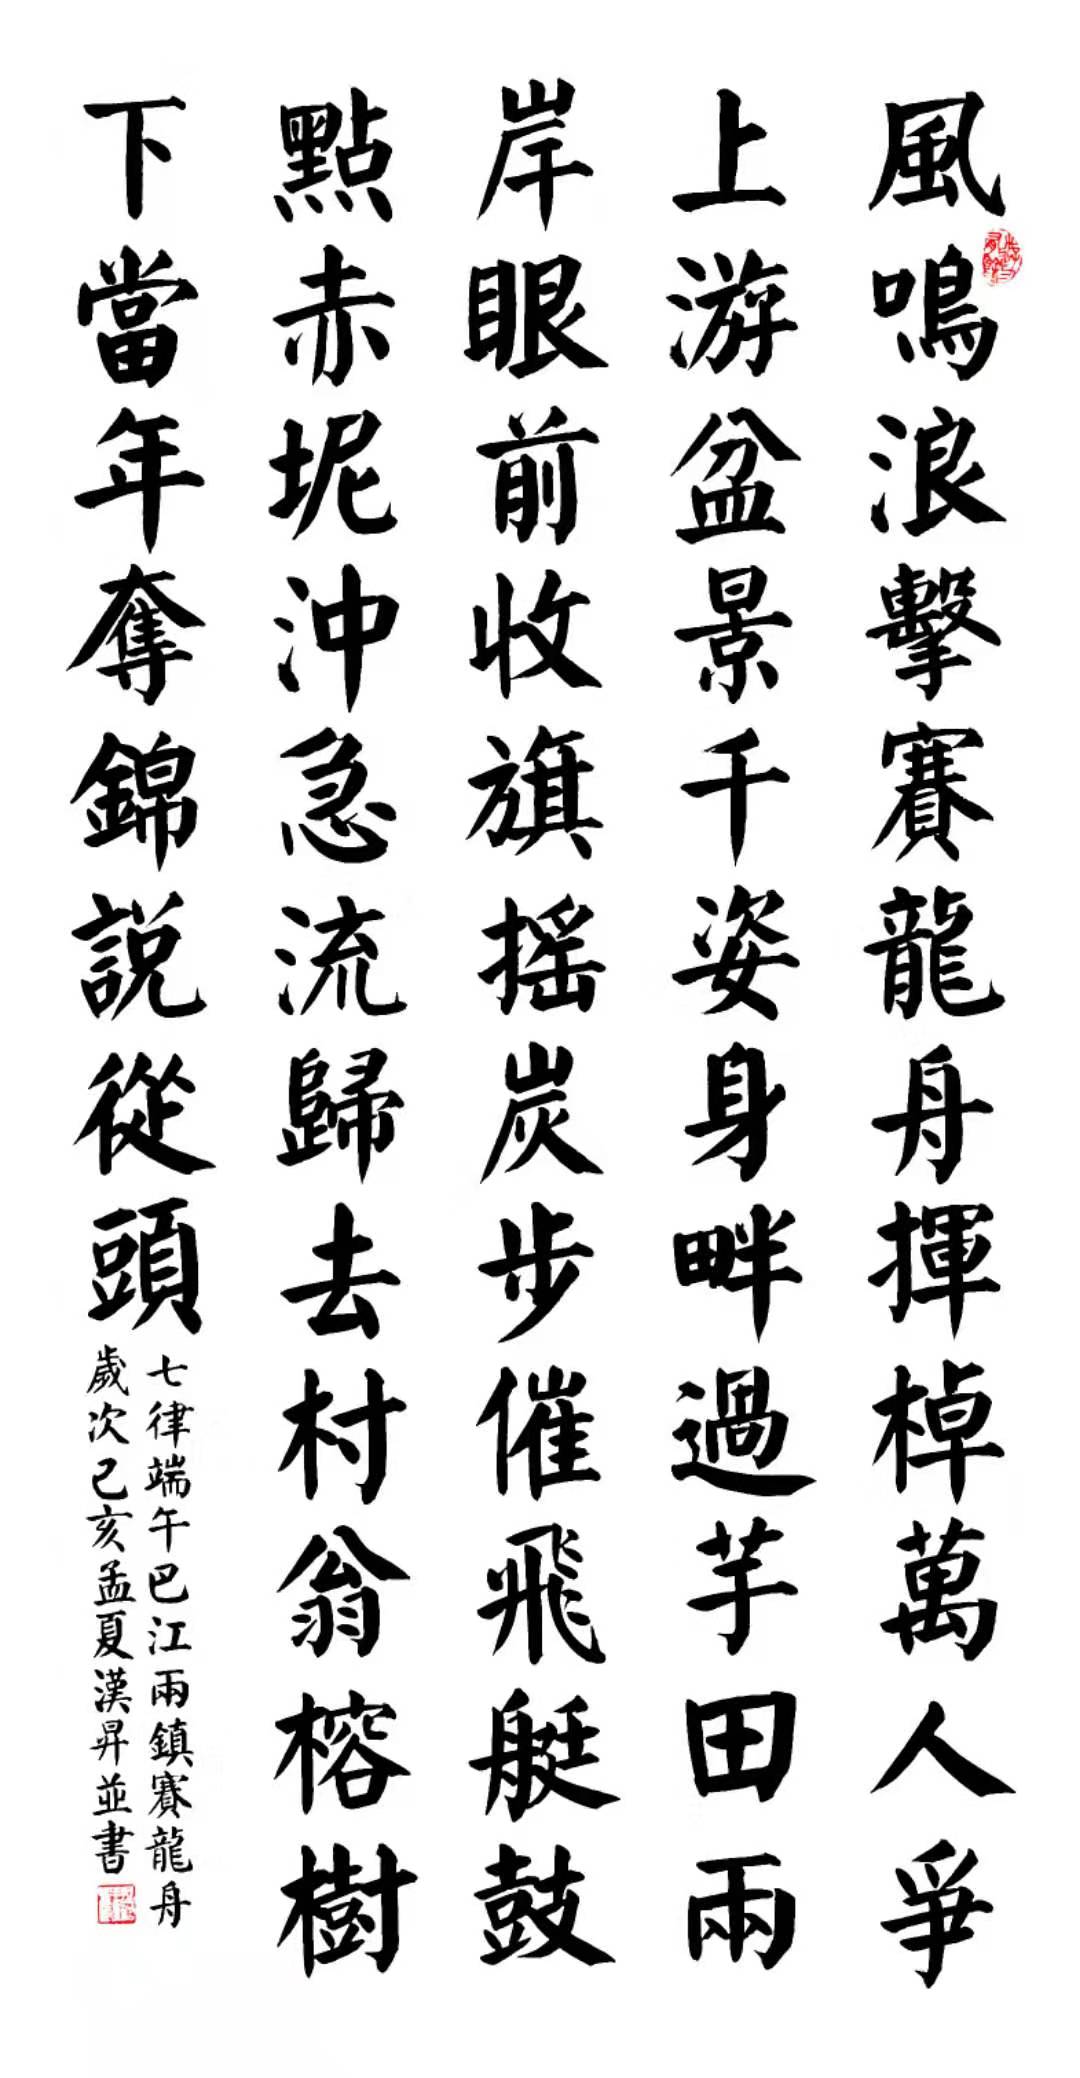 風鳴浪擊賽龍舟揮棹萬人爭
上游盆景千姿身畔過芋田兩
岸眼前收旗摇炭步催飛艇鼓
點赤坭沖急流歸去村翁榕樹
下當年奪錦説從頭
七律端午巴江兩鎮賽龍舟
歲次己亥孟夏漢昇並書